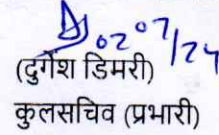 02/07/24
(दुर्गेश डिमरी)
कुलसचिव (प्रभारी)